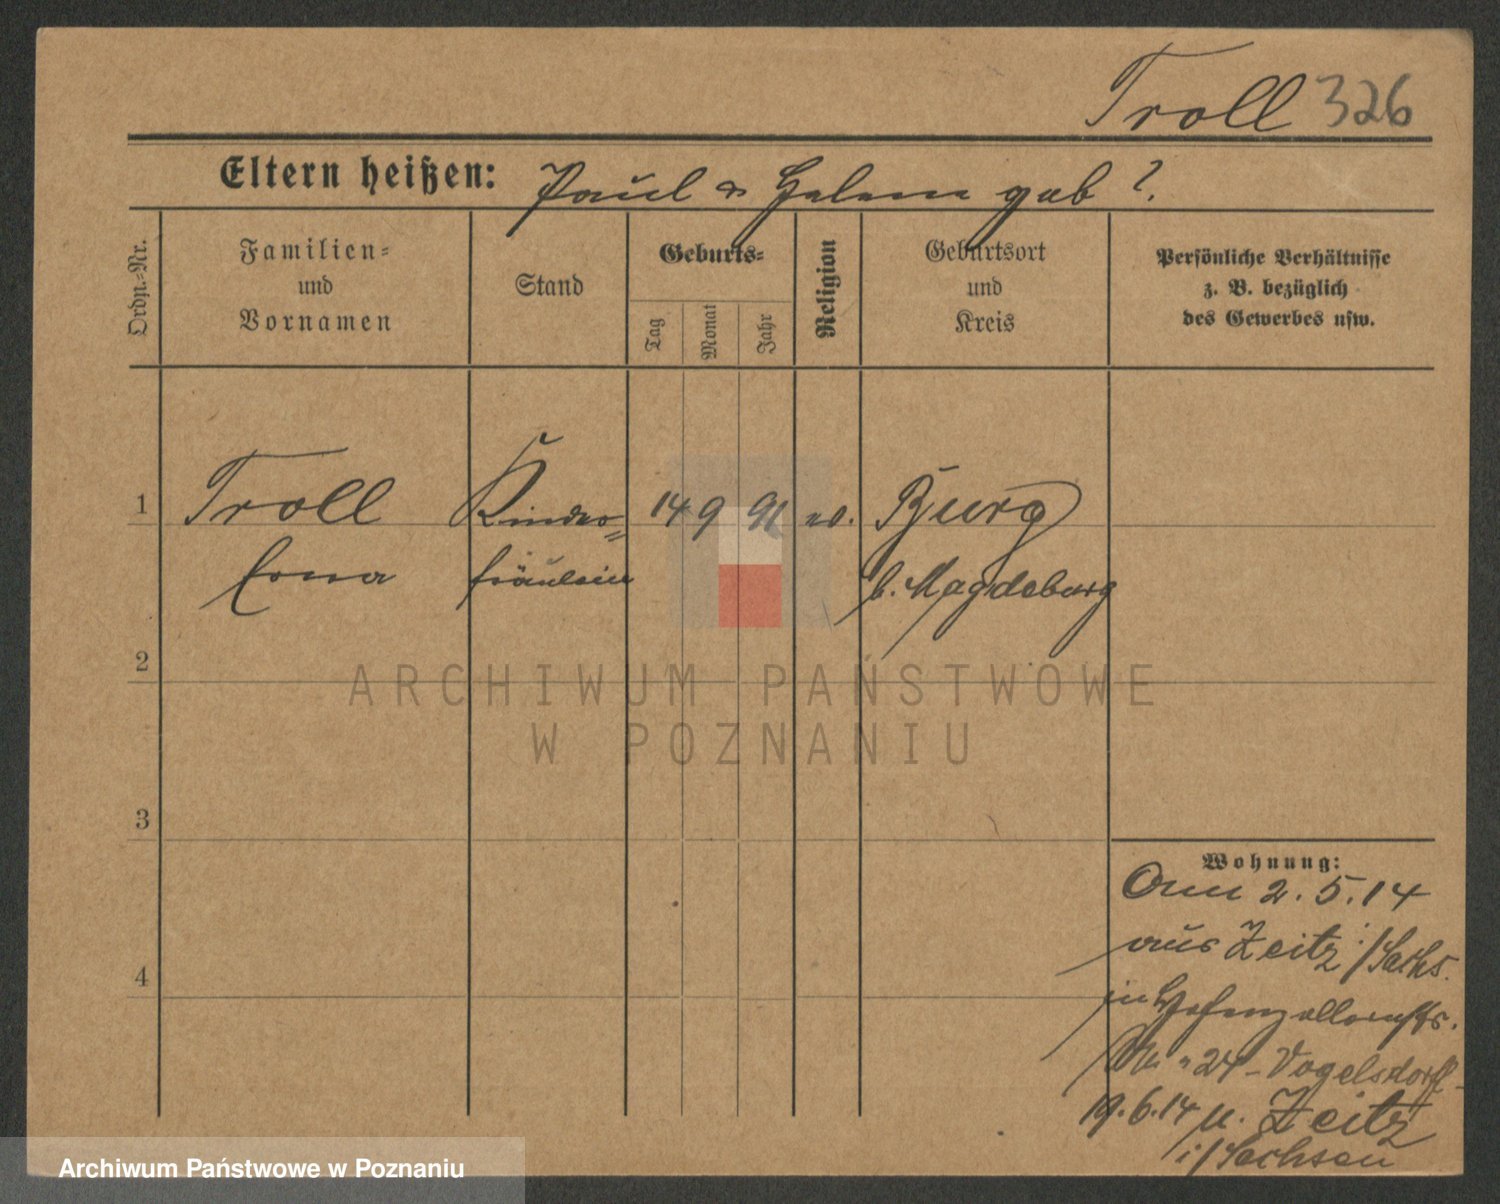 Troll 326
Eltern heißen: Paul & Helene geb ?.
Ordn.-Nr.
Familien-
und
Vornamen
Stand
Geburts-
Tag
Monat
Jahr
Religion
Geburtsort
und
Kreis
Persönliche Verhältnisse
z. B. bezüglich
des Gewerbes usw.
1 Troll Kinder= 14 9 91 ev. Burg
Erna fräulein b. Magdeburg
2
ARCHIWUM PAŃSTWOWE
W POZNANIU
3
Wohnung:
Am 2.5.14
aus Zeitz i/Sachs.
in Hohenzollernstr.
24 - Vogelsdorff -
4
19.6.14 n. Zeitz
i/Sachsen
Archiwum Państwowe w Poznaniu